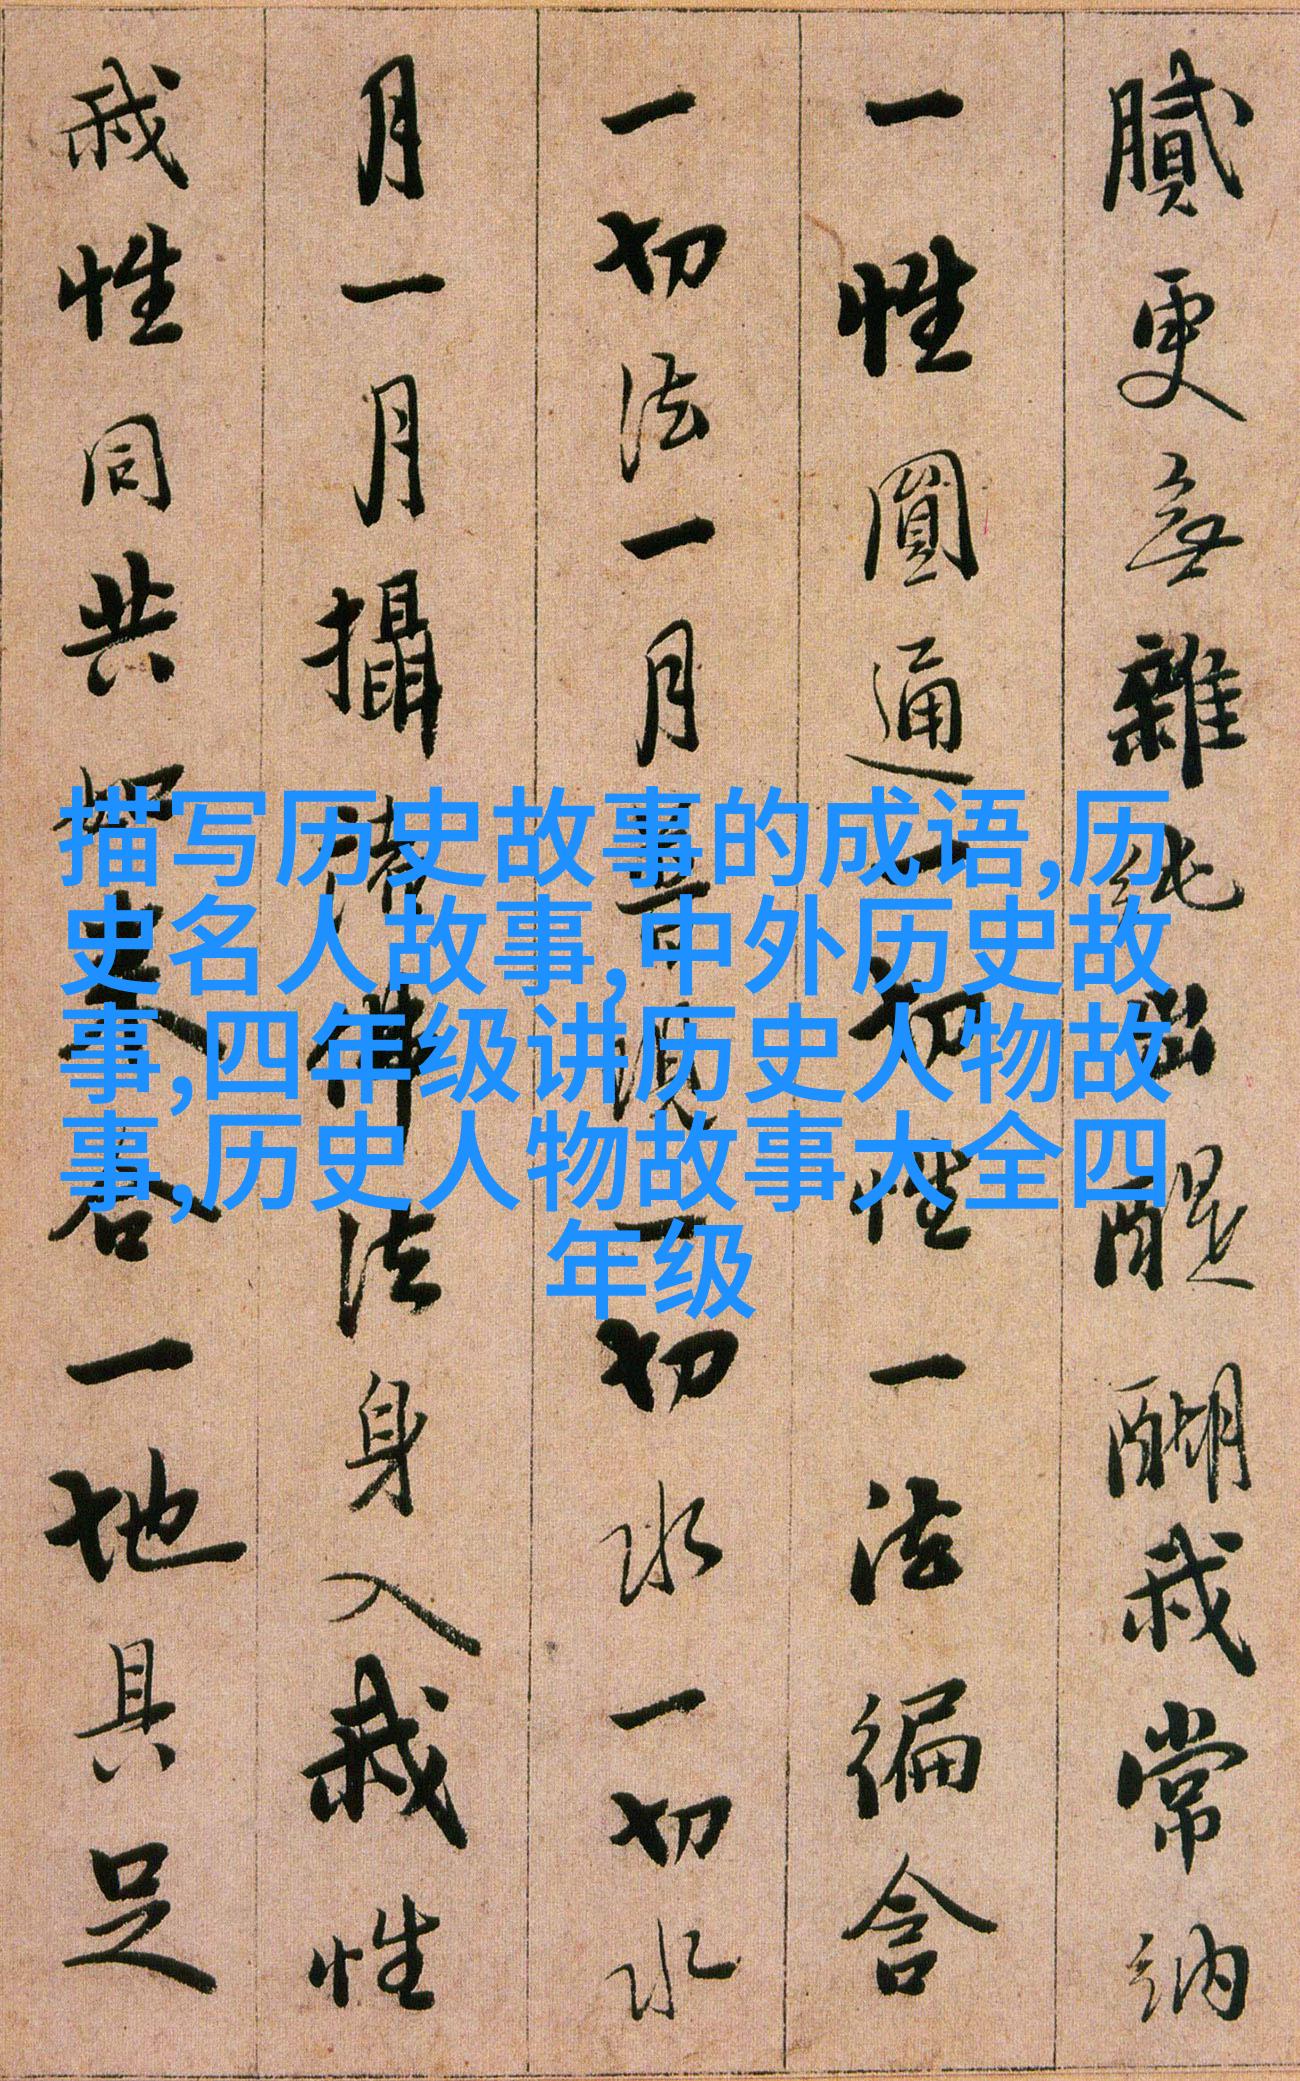 描写历史故事的成语,历
史名人故事,中外历史故
事,四年级讲历史人物故
事,历史人物故事大全四
年级
膩更無雜純出醍醐我常納
一性圓通一切性一法徧含
一切法一月普現一切水一切水
月一月攝諸佛法身入我性
我性同共如來合一地具足